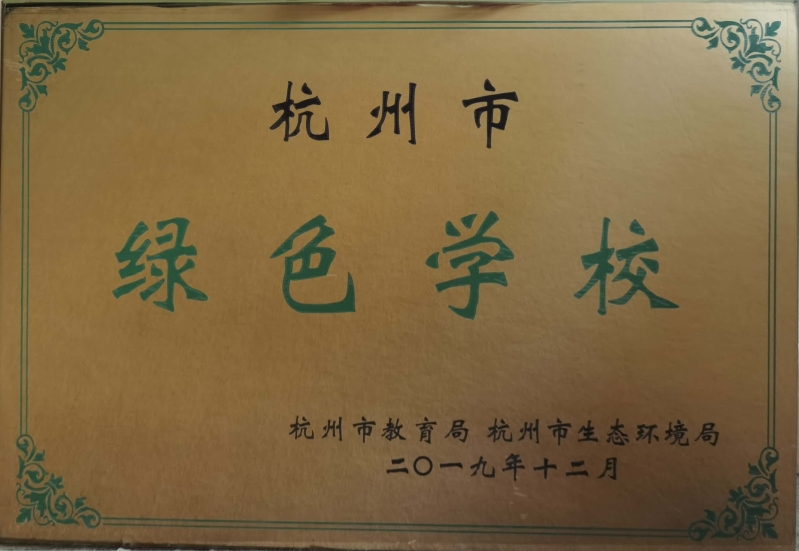 杭州市
绿色学校
杭州市教育局 杭州市生态环境局
二〇一九年十二月